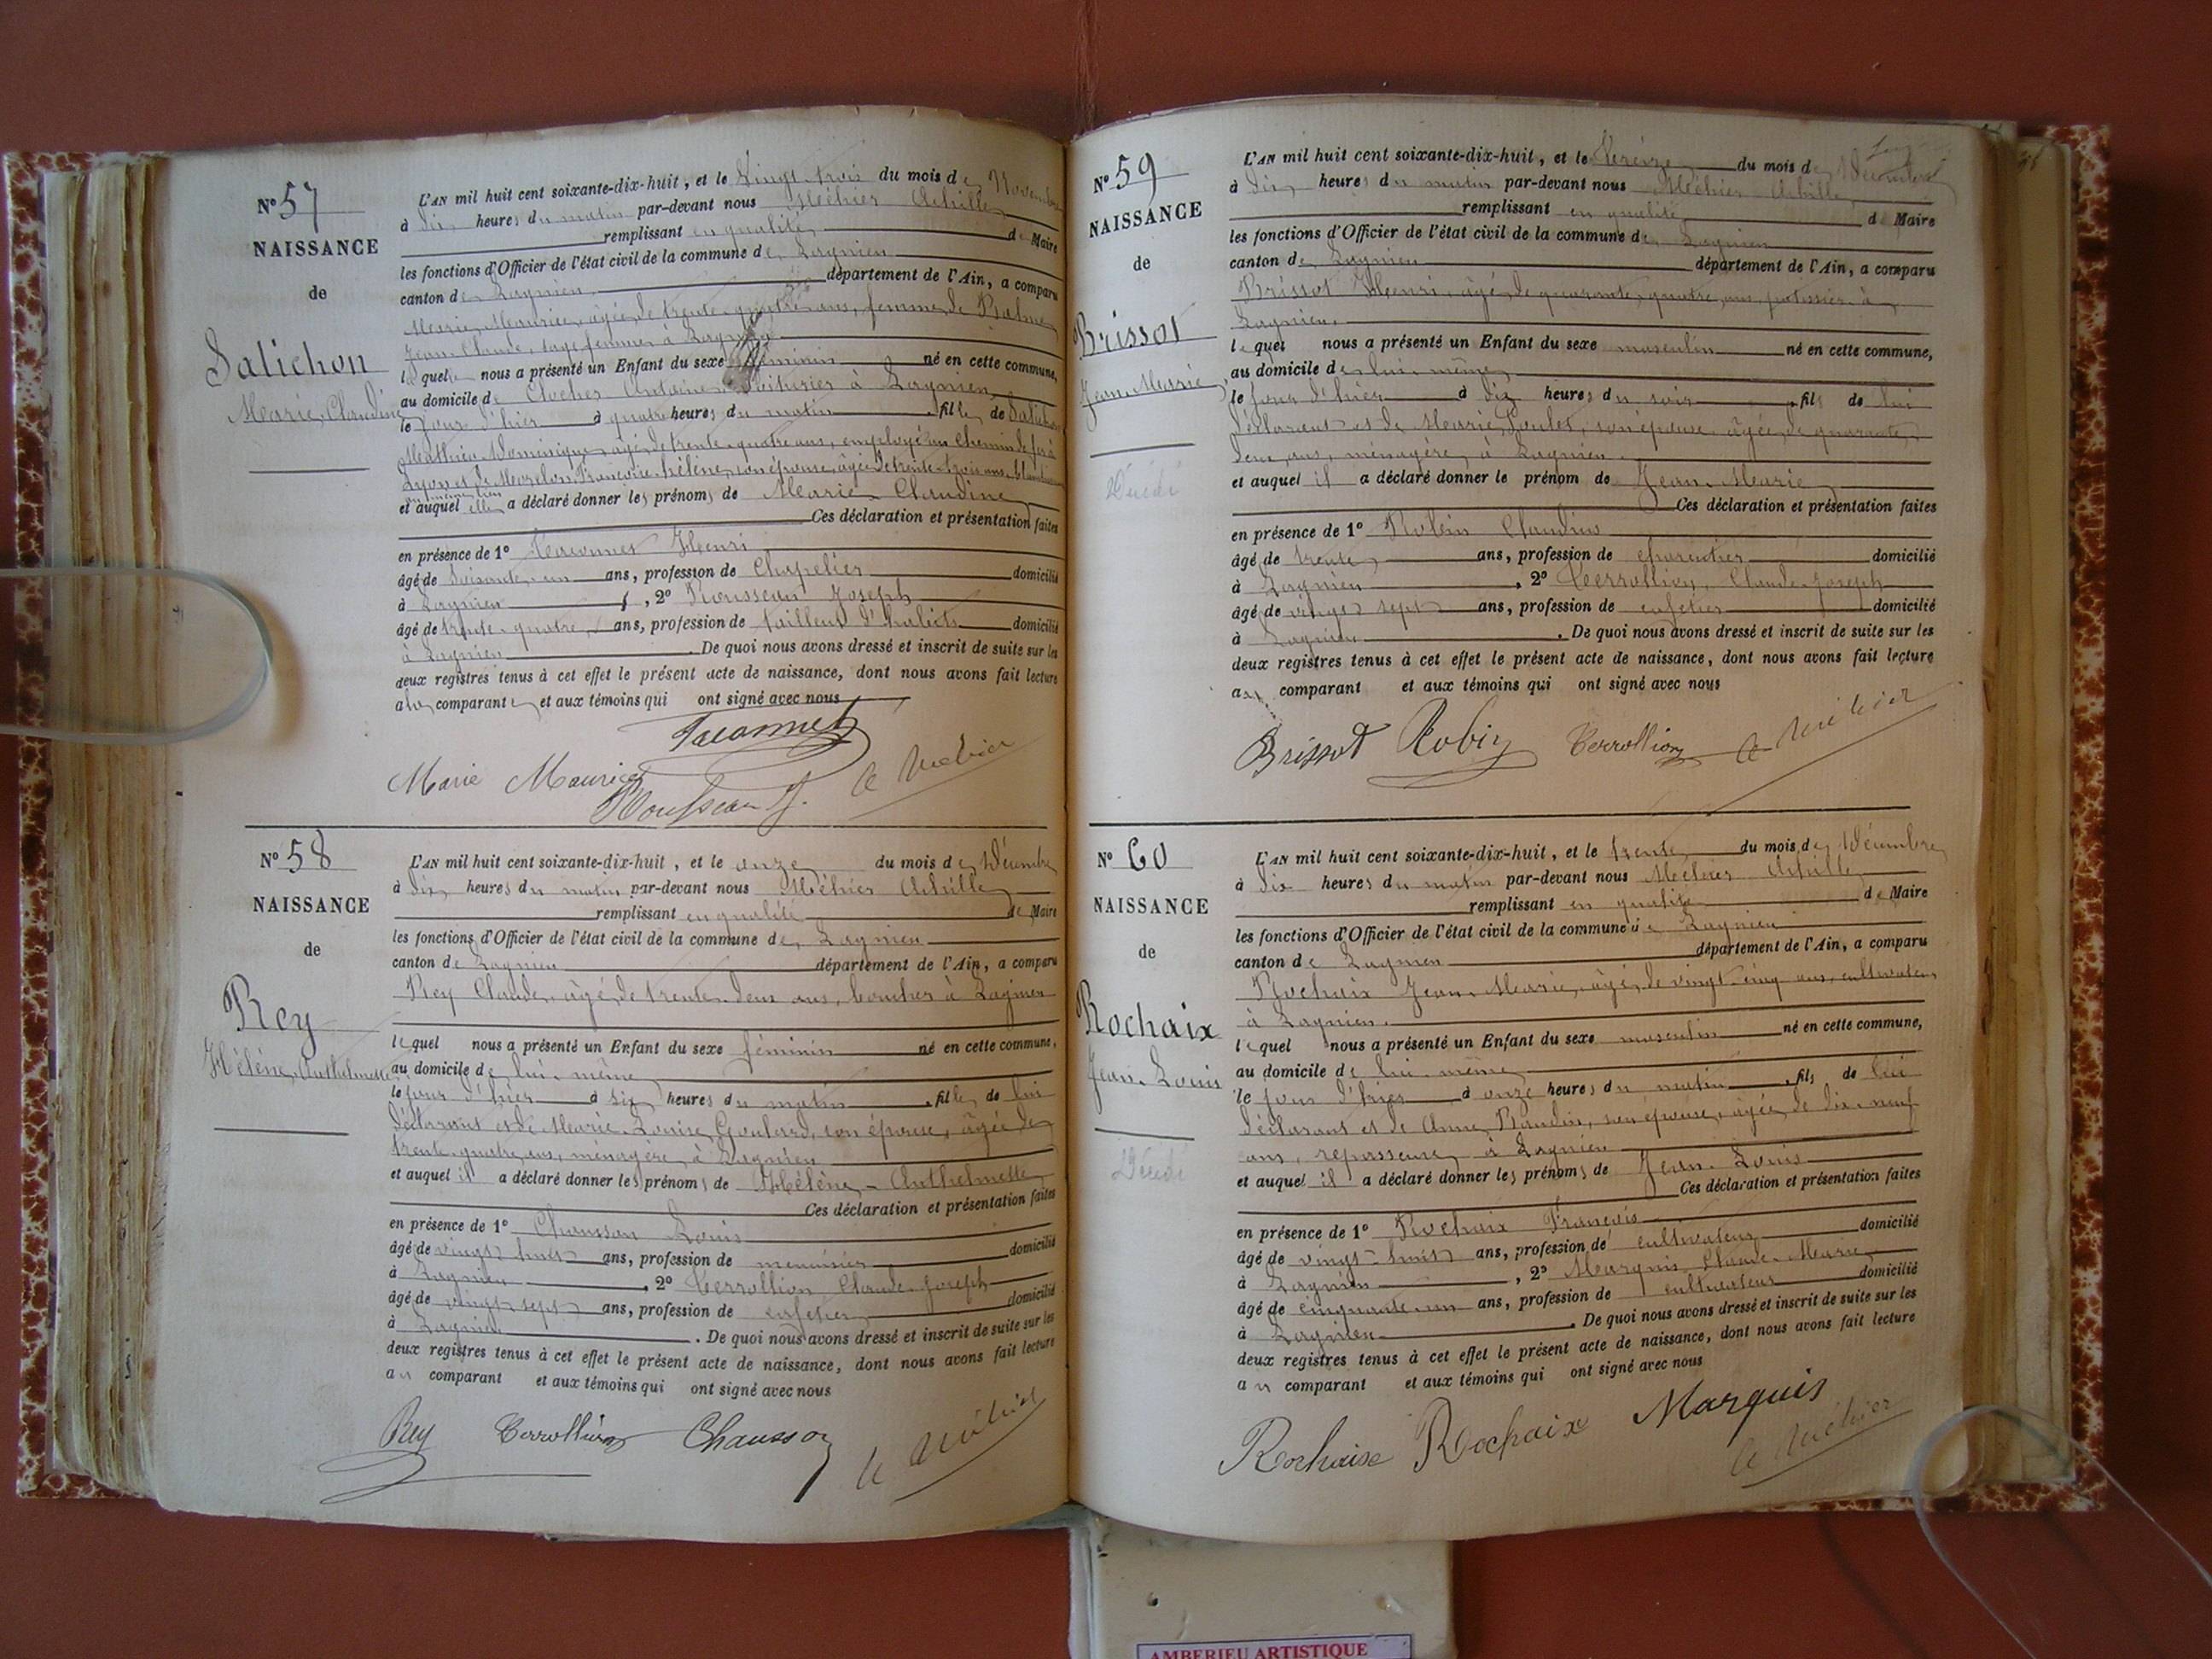 N° 57
NAISSANCE
de
Salichon
Marie Claudine
L'AN mil huit cent soixante-dix-huit, et le Vingt trois du mois de Novembre
à dix heures du matin par-devant nous Méhier Achille
remplissant en qualité de Maire
les fonctions d'Officier de l'état civil de la commune de Lagnieu
canton de Lagnieu département de l'Ain, a comparu
Marie Maurice, âgée de trente quatre ans, femme de Balme
Jean Claude, sage femme à Lagnieu
laquelle nous a présenté un Enfant du sexe féminin né en cette commune,
au domicile de Clocher Antoine à Lagnieu
le jour d'hier à quatre heures du matin, fille de Salichon
Mathieu Dominique, âgé de trente quatre ans, employé au Chemin de fer à
Lyon et de Morelon Françoise hélène, son épouse, âgée de trente trois ans
au même lieu
et auquel elle a déclaré donner les prénoms de Marie Claudine
Ces déclaration et présentation faites
en présence de 1° Henri
âgé de Soixante un ans, profession de Chapelier domicilié
à Lagnieu, 2° Rousseau Joseph
âgé de trente quatre ans, profession de tailleur d'habits domicilié
à Lagnieu. De quoi nous avons dressé et inscrit de suite sur les
deux registres tenus à cet effet le présent acte de naissance, dont nous avons fait lecture
à la comparante et aux témoins qui ont signé avec nous
Marie Maurice
Rousseau J.
A Méhier
N° 58
NAISSANCE
de
Rey
Hélène Anthelmette
L'AN mil huit cent soixante-dix-huit, et le onze du mois de Décembre
à dix heures du matin par-devant nous Méhier Achille
remplissant en qualité de Maire
les fonctions d'Officier de l'état civil de la commune de Lagnieu
canton de Lagnieu département de l'Ain, a comparu
Rey Claude, âgé de trente deux ans, boucher à Lagnieu
lequel nous a présenté un Enfant du sexe féminin né en cette commune,
au domicile de lui-même
le jour d'hier à six heures du matin, fille de lui
déclarant et de Marie Louise Goulard, son épouse, âgée de
trente quatre ans, ménagère à Lagnieu
et auquel il a déclaré donner les prénoms de Hélène - Anthelmette
Ces déclaration et présentation faites
en présence de 1° Chausson Louis
âgé de vingt huit ans, profession de menuisier domicilié
à Lagnieu, 2° Terrollion Claude Joseph
âgé de vingt sept ans, profession de cafetier domicilié
à Lagnieu. De quoi nous avons dressé et inscrit de suite sur les
deux registres tenus à cet effet le présent acte de naissance, dont nous avons fait lecture
au comparant et aux témoins qui ont signé avec nous
Rey Terrollion Chausson A Méhier
N° 59
NAISSANCE
de
Brissot
Jean Marie
Décédé
L'AN mil huit cent soixante-dix-huit, et le treize du mois de Décembre
à dix heures du matin par-devant nous Méhier Achille
remplissant en qualité de Maire
les fonctions d'Officier de l'état civil de la commune de Lagnieu
canton de Lagnieu département de l'Ain, a comparu
Brissot Henri, âgé de quarante quatre ans, patissier à
Lagnieu.
lequel nous a présenté un Enfant du sexe masculin né en cette commune,
au domicile de lui-même
le jour d'hier à dix heures du soir, fils de lui
déclarant et de Marie Poulet, son épouse, âgée de quarante
deux ans, ménagère à Lagnieu
et auquel il a déclaré donner le prénom de Jean Marie
Ces déclaration et présentation faites
en présence de 1° Robin Claudius
âgé de trente ans, profession de charcutier domicilié
à Lagnieu, 2° Terrollion, Claude Joseph
âgé de vingt sept ans, profession de cafetier domicilié
à Lagnieu. De quoi nous avons dressé et inscrit de suite sur les
deux registres tenus à cet effet le présent acte de naissance, dont nous avons fait lecture
au comparant et aux témoins qui ont signé avec nous
Brissot Robin Terrollion A Méhier
N° 60
NAISSANCE
de
Rochaix
Jean Louis
Décédé
L'AN mil huit cent soixante-dix-huit, et le trente du mois de Décembre
à dix heures du matin par-devant nous Méhier Achille
remplissant en qualité de Maire
les fonctions d'Officier de l'état civil de la commune de Lagnieu
canton de Lagnieu département de l'Ain, a comparu
Rochaix Jean Marie, âgé de vingt cinq ans, cultivateur
à Lagnieu.
lequel nous a présenté un Enfant du sexe masculin né en cette commune,
au domicile de lui-même
le jour d'hier à onze heures du matin, fils de lui
déclarant et de Anne Baudin, son épouse, âgée de dix-neuf
ans, repasseuse à Lagnieu
et auquel il a déclaré donner les prénoms de Jean Louis
Ces déclaration et présentation faites
en présence de 1° Rochaix François
âgé de vingt huit ans, profession de cultivateur domicilié
à Lagnieu, 2° Marquis Claude Marie
âgé de cinquante un ans, profession de cultivateur domicilié
à Lagnieu. De quoi nous avons dressé et inscrit de suite sur les
deux registres tenus à cet effet le présent acte de naissance, dont nous avons fait lecture
au comparant et aux témoins qui ont signé avec nous
Rochaix Rochaix Marquis
A Méhier
AMBERIEU ARTISTIQUE